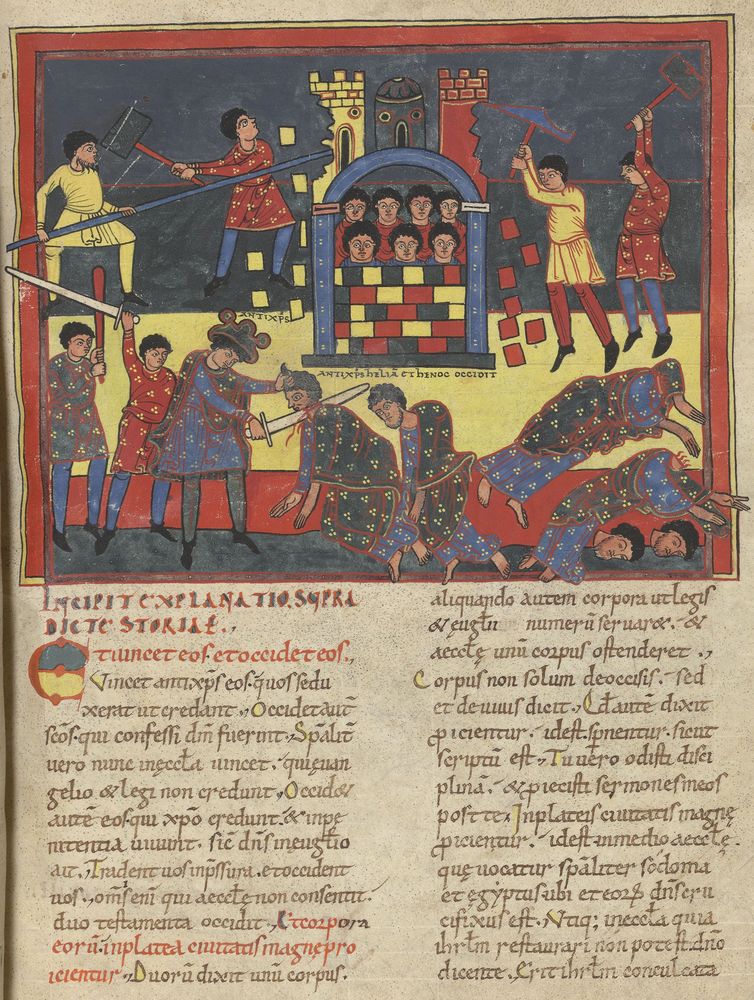 ANTIXP̄S
ANTIXP̄S HELIĀ ET HENOC OCCIDIT
INCIPIT EXPLANATIO SUPRA
DICTE STORIAE.
Et vincet eos. et occidet eos.
Vincet antixp̄s eos. quos sedu
xerat ut credant. Occidet aut̄
sc̄os. qui confessi dn̄m fuerint. Sp̄alit̄
vero nunc in ęccła vincet. qui ęuan
gelio & legi non credunt. Occid&
autē eos. qui xp̄o credunt. & in pę
nitentia vivunt. sic̄ dn̄s in euglio
ait. Tradent vos in p̄ssura. et occident
vos. om̄s enī qui aeccłę non consentit.
duo testamenta occidit. Et corpora
eorū. in platea civitatis magnę pro
icientur. Duorū dixit unū corpus.
aliquando autem corpora ut legis
& ęuglii numerū servar&. &
aeccłę unū corpus ostenderet.
Corpus non solum de occisis. sed
et de vivis dicit. Qd̄ autē dixit
proicientur. id est. sp̄nentur. sicut
scriptū est. Tu vero odisti disci
plinā. & p̄iecisti sermones meos
post te. In plateis civitatis magnę
proicientur. id est in medio aeccłę.
quę vocatur sp̄aliter sodoma
et ęgỹptus. ubi et eorū dn̄s cru
cifixus est. Utiq; in eccła quia
ihrłm restaurari non potest. dn̄o
dicente. Erit ihrłm conculcata